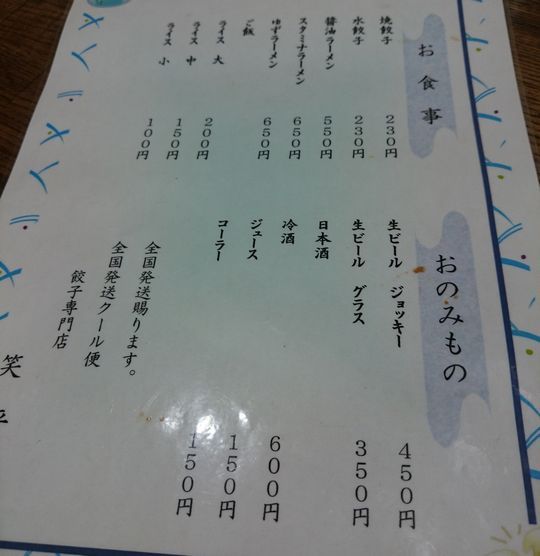 お食事
焼餃子 230円
水餃子 230円
醤油ラーメン 550円
スタミナラーメン 650円
ゆずラーメン 650円
ご飯
ライス 大 200円
ライス 中 150円
ライス 小 100円
おのみもの
生ビール ジョッキー 450円
生ビール グラス 350円
日本酒
冷酒 600円
ジュース 150円
コーラー 150円
全国発送賜ります。
全国発送クール便
餃子専門店
笑